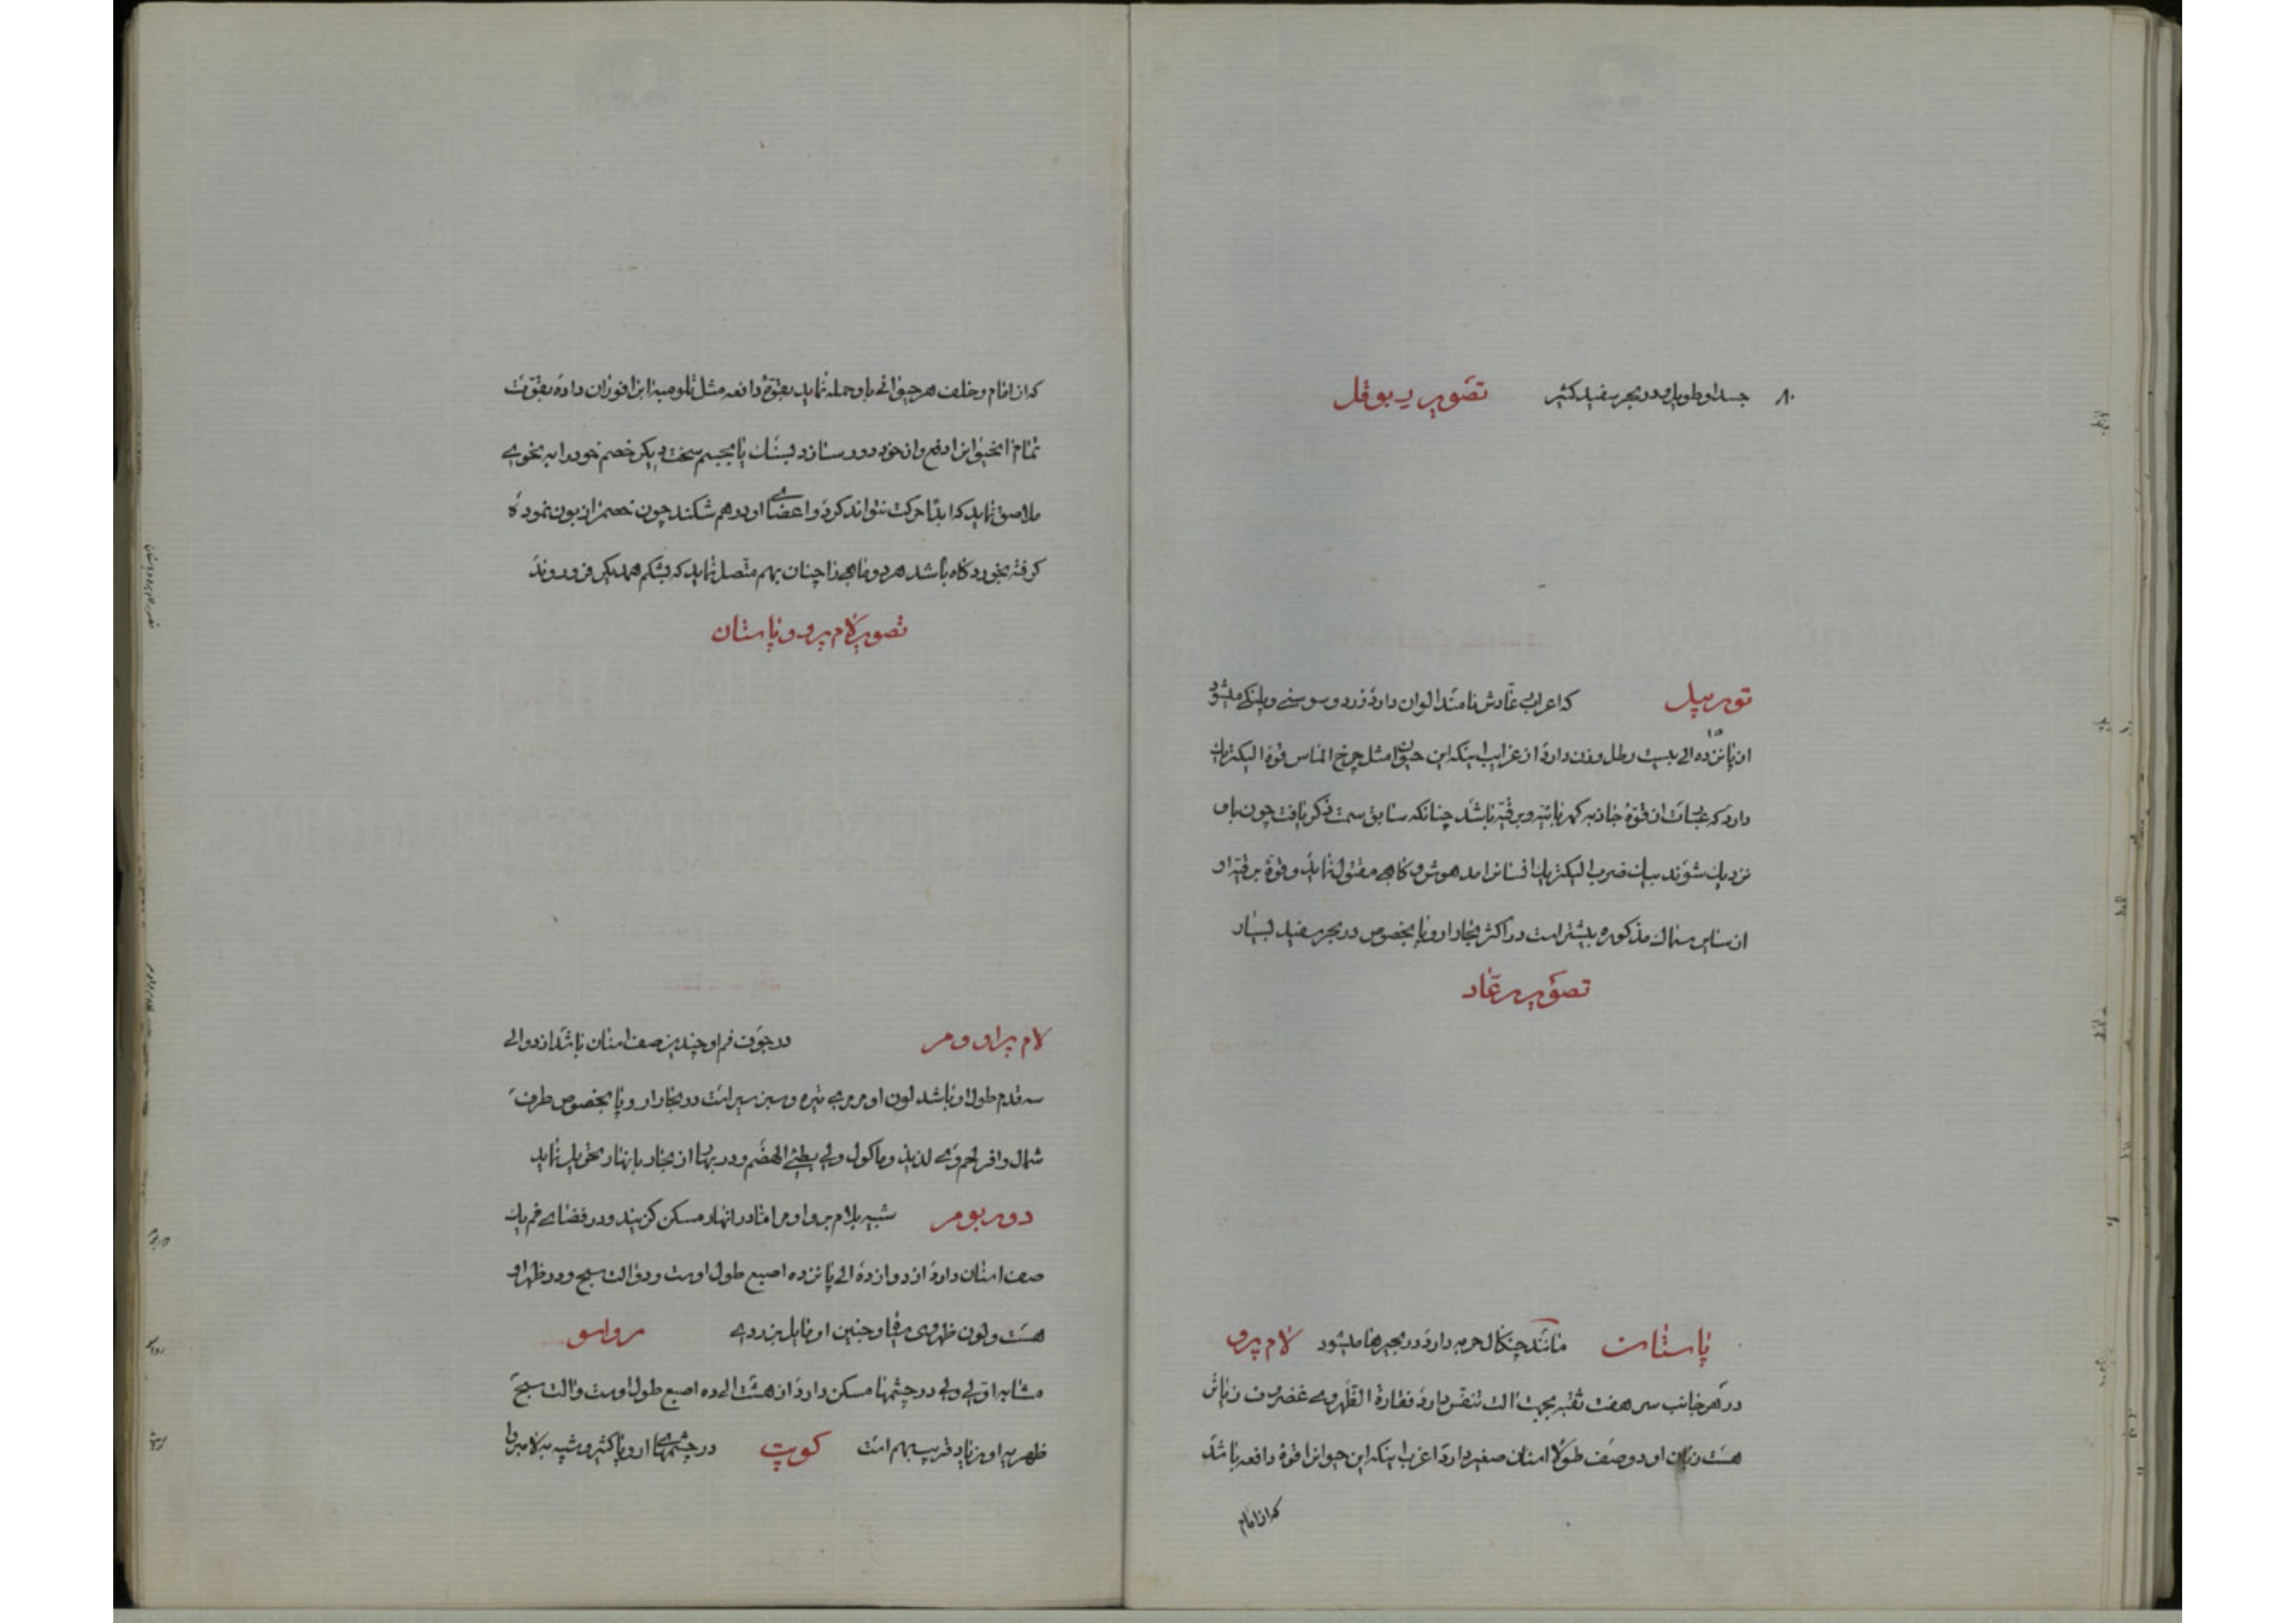 ۸۰ جسد او طویل و در بحر سفید کثیر تصویر ریبوقل
تورپیل که اعراب رعّادش نامند الوان دارد زرد و سوسنی و پلنکی میشود
از پانزده ۱۵ الی بیست رطل وزن دارد از غرایب اینکه این حیوان مثل چرخ الماس قوهٔ الیکتریك
دارد که عبارت از قوهٔ جاذبه کهربائیه و برقیه باشد چنانکه سابق سمت ذکر یافت چون باو
نزدیك شوند بیك ضرب الیکتریك انسانرا مدهوش و کاهی مقتول نماید و قوهٔ برقیه او
از سایر سماك مذکوره بیشتر است در اکثر بحار اروپا بخصوص در بحر سفید بسیار
تصویر رعّاد
پاستنان مانند چنکال حربه دارد در بحیرها میشود لام پرو
در هر جانب سر هفت ثقبه بجهت الت تنفس دارد فقارة الظهر وی غضروف زبانش
هست زبان او دو صف طولا اسنان صغیر دارد اغرب اینکه این حیوانرا قوهٔ دافعه باشد
که از امام
که از امام و خلف هر حیوانی باو حمله نماید بقوهٔ دافعه مثل تلومبه ابرا فوران داده بقوّت
تمام انحیوانرا دفع و از خود دور سازد و بسنك یا بجسم سخت دیکر خصم خود را بنحوی
ملاصق نماید که ابدًا حرکت نتواند کرد و اعضای او درهم شکند چون خصمرا زبون نموده
کرفته بخورد کاه باشد هر دو ماهی را چنان بهم متصل نماید که بشکم همدیکر فرو روند
تصویر لام پرو و پاستنان
لام پراو و مر در جوف فم او چندین صف اسنان باشد از دو الی
سه قدم طول او باشد لون او مرمری تیره و سبز سیر است در بحار اروپا بخصوص طرف
شمال وافر لحم وی لذیذ و ماکول ولی بطئی الهضم و در بهار از بحار بانهار تحویل نماید
دو ربو مر شبیه بلام پرو او مر امّا در انهار مسکن کزیند و در فضای فم یك
صف اسنان دارد از دوازده الی پانزده اصبع طول اوست و دو الت سبح در ظهر او
هست و لون ظهر وی سیاه و جنبین او مایل بزردی رواسو
مشابه اوّلی ولی در چشمها مسکن دارد از هشت الی ده اصبع طول اوست و الت سبح
ظهریه او زیاد قریب بهم است کوپت در چشمهای اروپا کثیر و شبیه به لامپرو